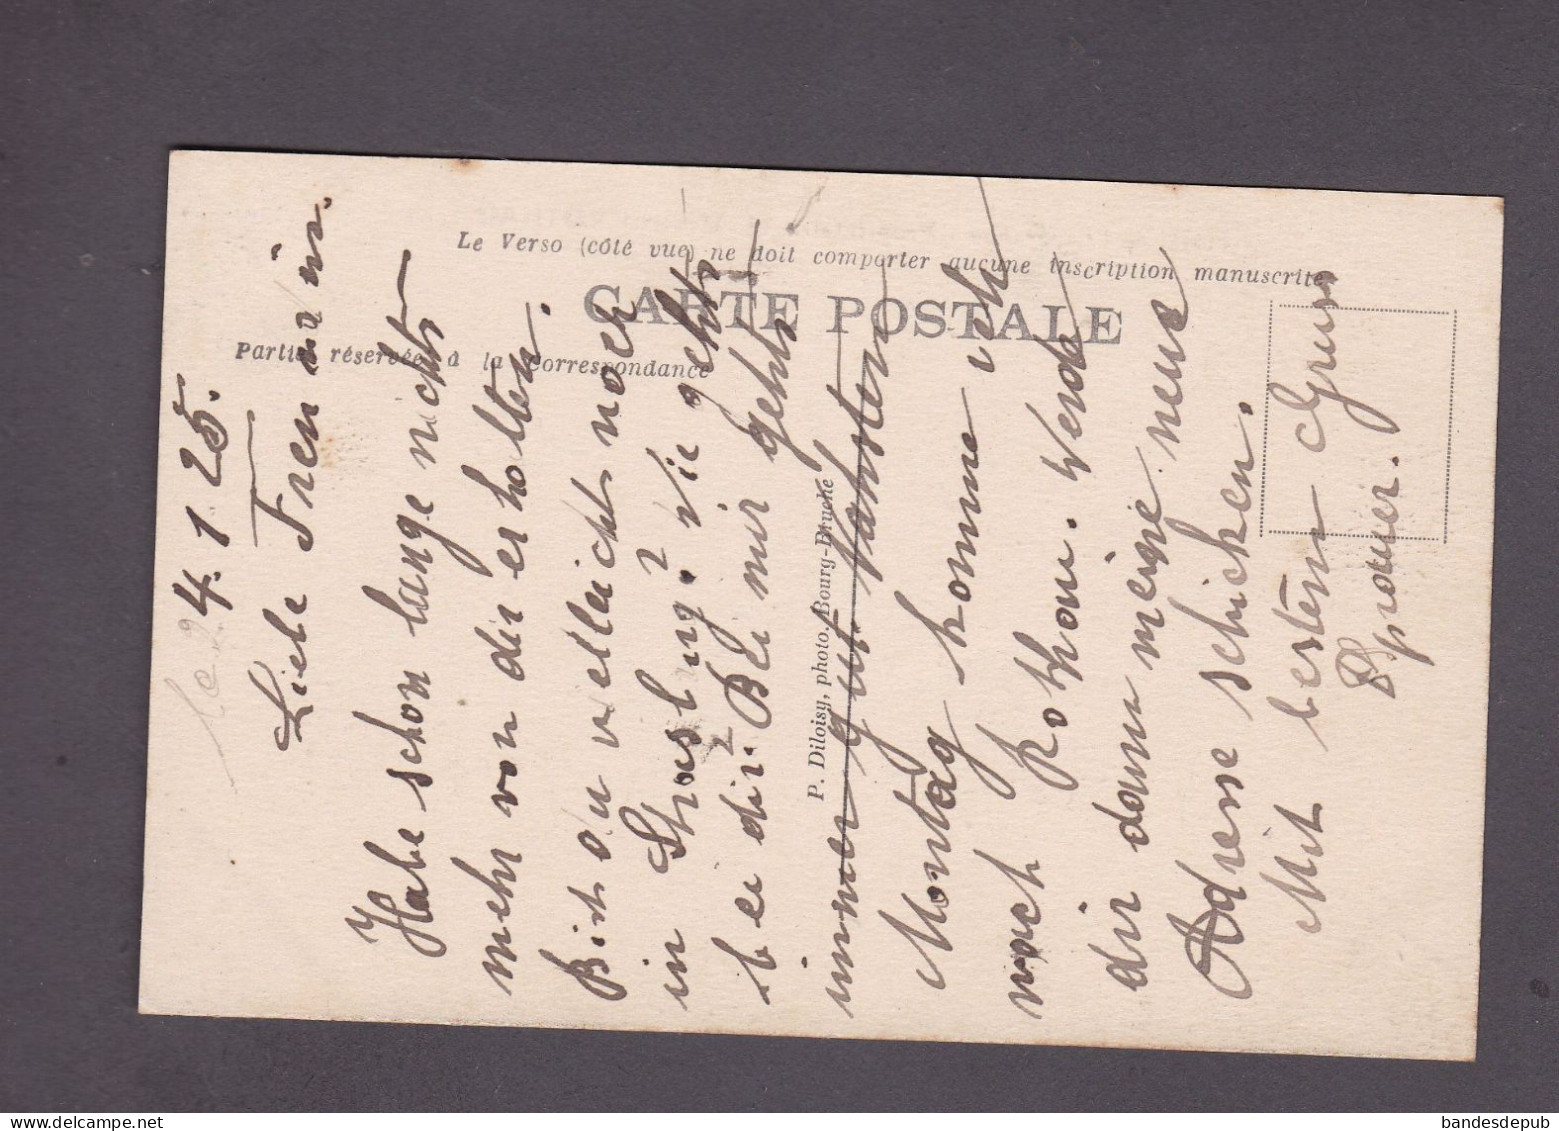 Le Verso (côté vue) ne doit comporter aucune inscription manuscrite
CARTE POSTALE
Partie réservée à la Correspondance
P. Diloisy, photo. Bourg-Bruche
4. 1. 25.
Liebe Freundin.
Habe schon lange nichts
mehr von dir erholten.
Bist du velleicht noch
in Strasburg? Wie gehts
bei dir. Bei mir gehts
immer gut. Nahsten
Montag komme ich
nach Rothau. Werde
dir dann meine neue
Adresse schicken.
Mit besten Gruss
bandesdepub